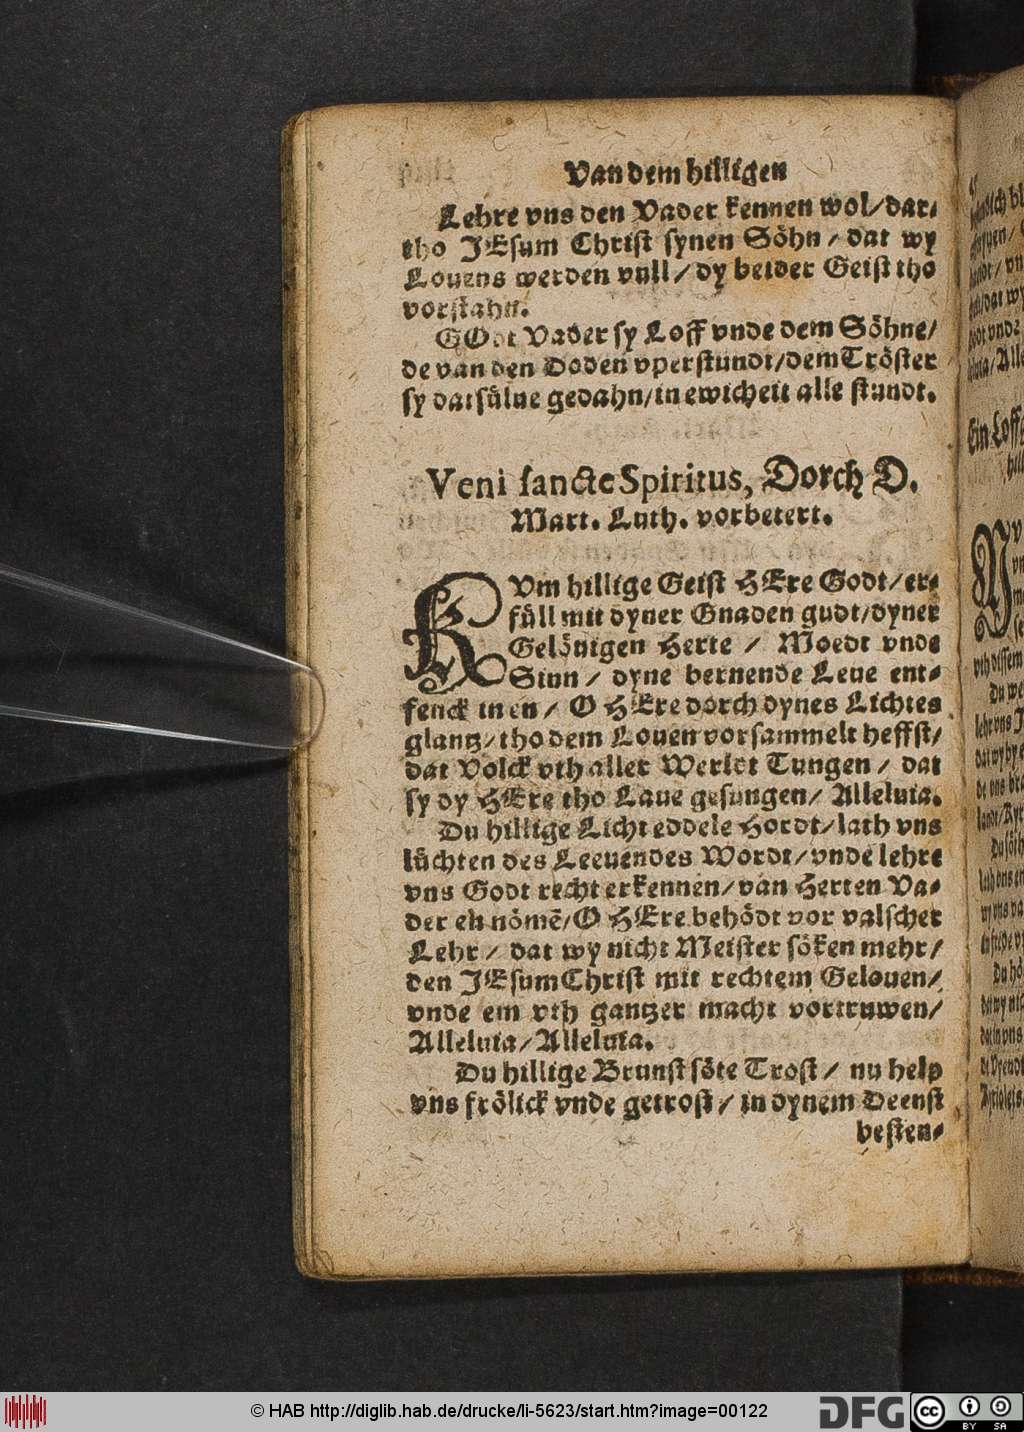 Van dem hilligen
Lehre vns den Vader kennen wol/dar-
tho JEsum Christ synen Söhn/dat wy
Louens werden vull/dy beider Geist tho
vorstahn.
GOdt Vader sy Loff vnde dem Söhne/
de van den Doden vperstundt/dem Tröster
sy datsülue gedahn/in ewicheit alle stundt.
Veni sancte Spiritus, Dorch D.
Mart. Luth. vorbetert.
KVm hillige Geist HEre Godt/er-
füll mit dyner Gnaden gudt/dyner
Gelöuigen Herte / Moedt vnde
Sinn / dyne bernende Leue ent-
fenck in en / O HEre dorch dynes Lichtes
glantz/tho dem Louen vorsammelt heffst/
dat Volck vth aller Werlet Tungen / dat
sy dy HEre tho Laue gesungen/ Alleluia.
Du hillige Licht eddele Hordt/lath vns
lüchten des Leeuendes Wordt/vnde lehre
vns Godt recht erkennen/van Herten Va-
der en nömē/O HEre behödt vor valscher
Lehr / dat wy nicht Meister söken mehr/
den JEsum Christ mit rechtem Gelouen/
vnde em vth gantzer macht vortruwen/
Alleluia/Alleluia.
Du hillige Brunst söte Trost / nu help
vns frölick vnde getrost / in dynem Deenst
besten-
Ein Loff
© HAB http://diglib.hab.de/drucke/li-5623/start.htm?image=00122
DFG
cc
BY SA